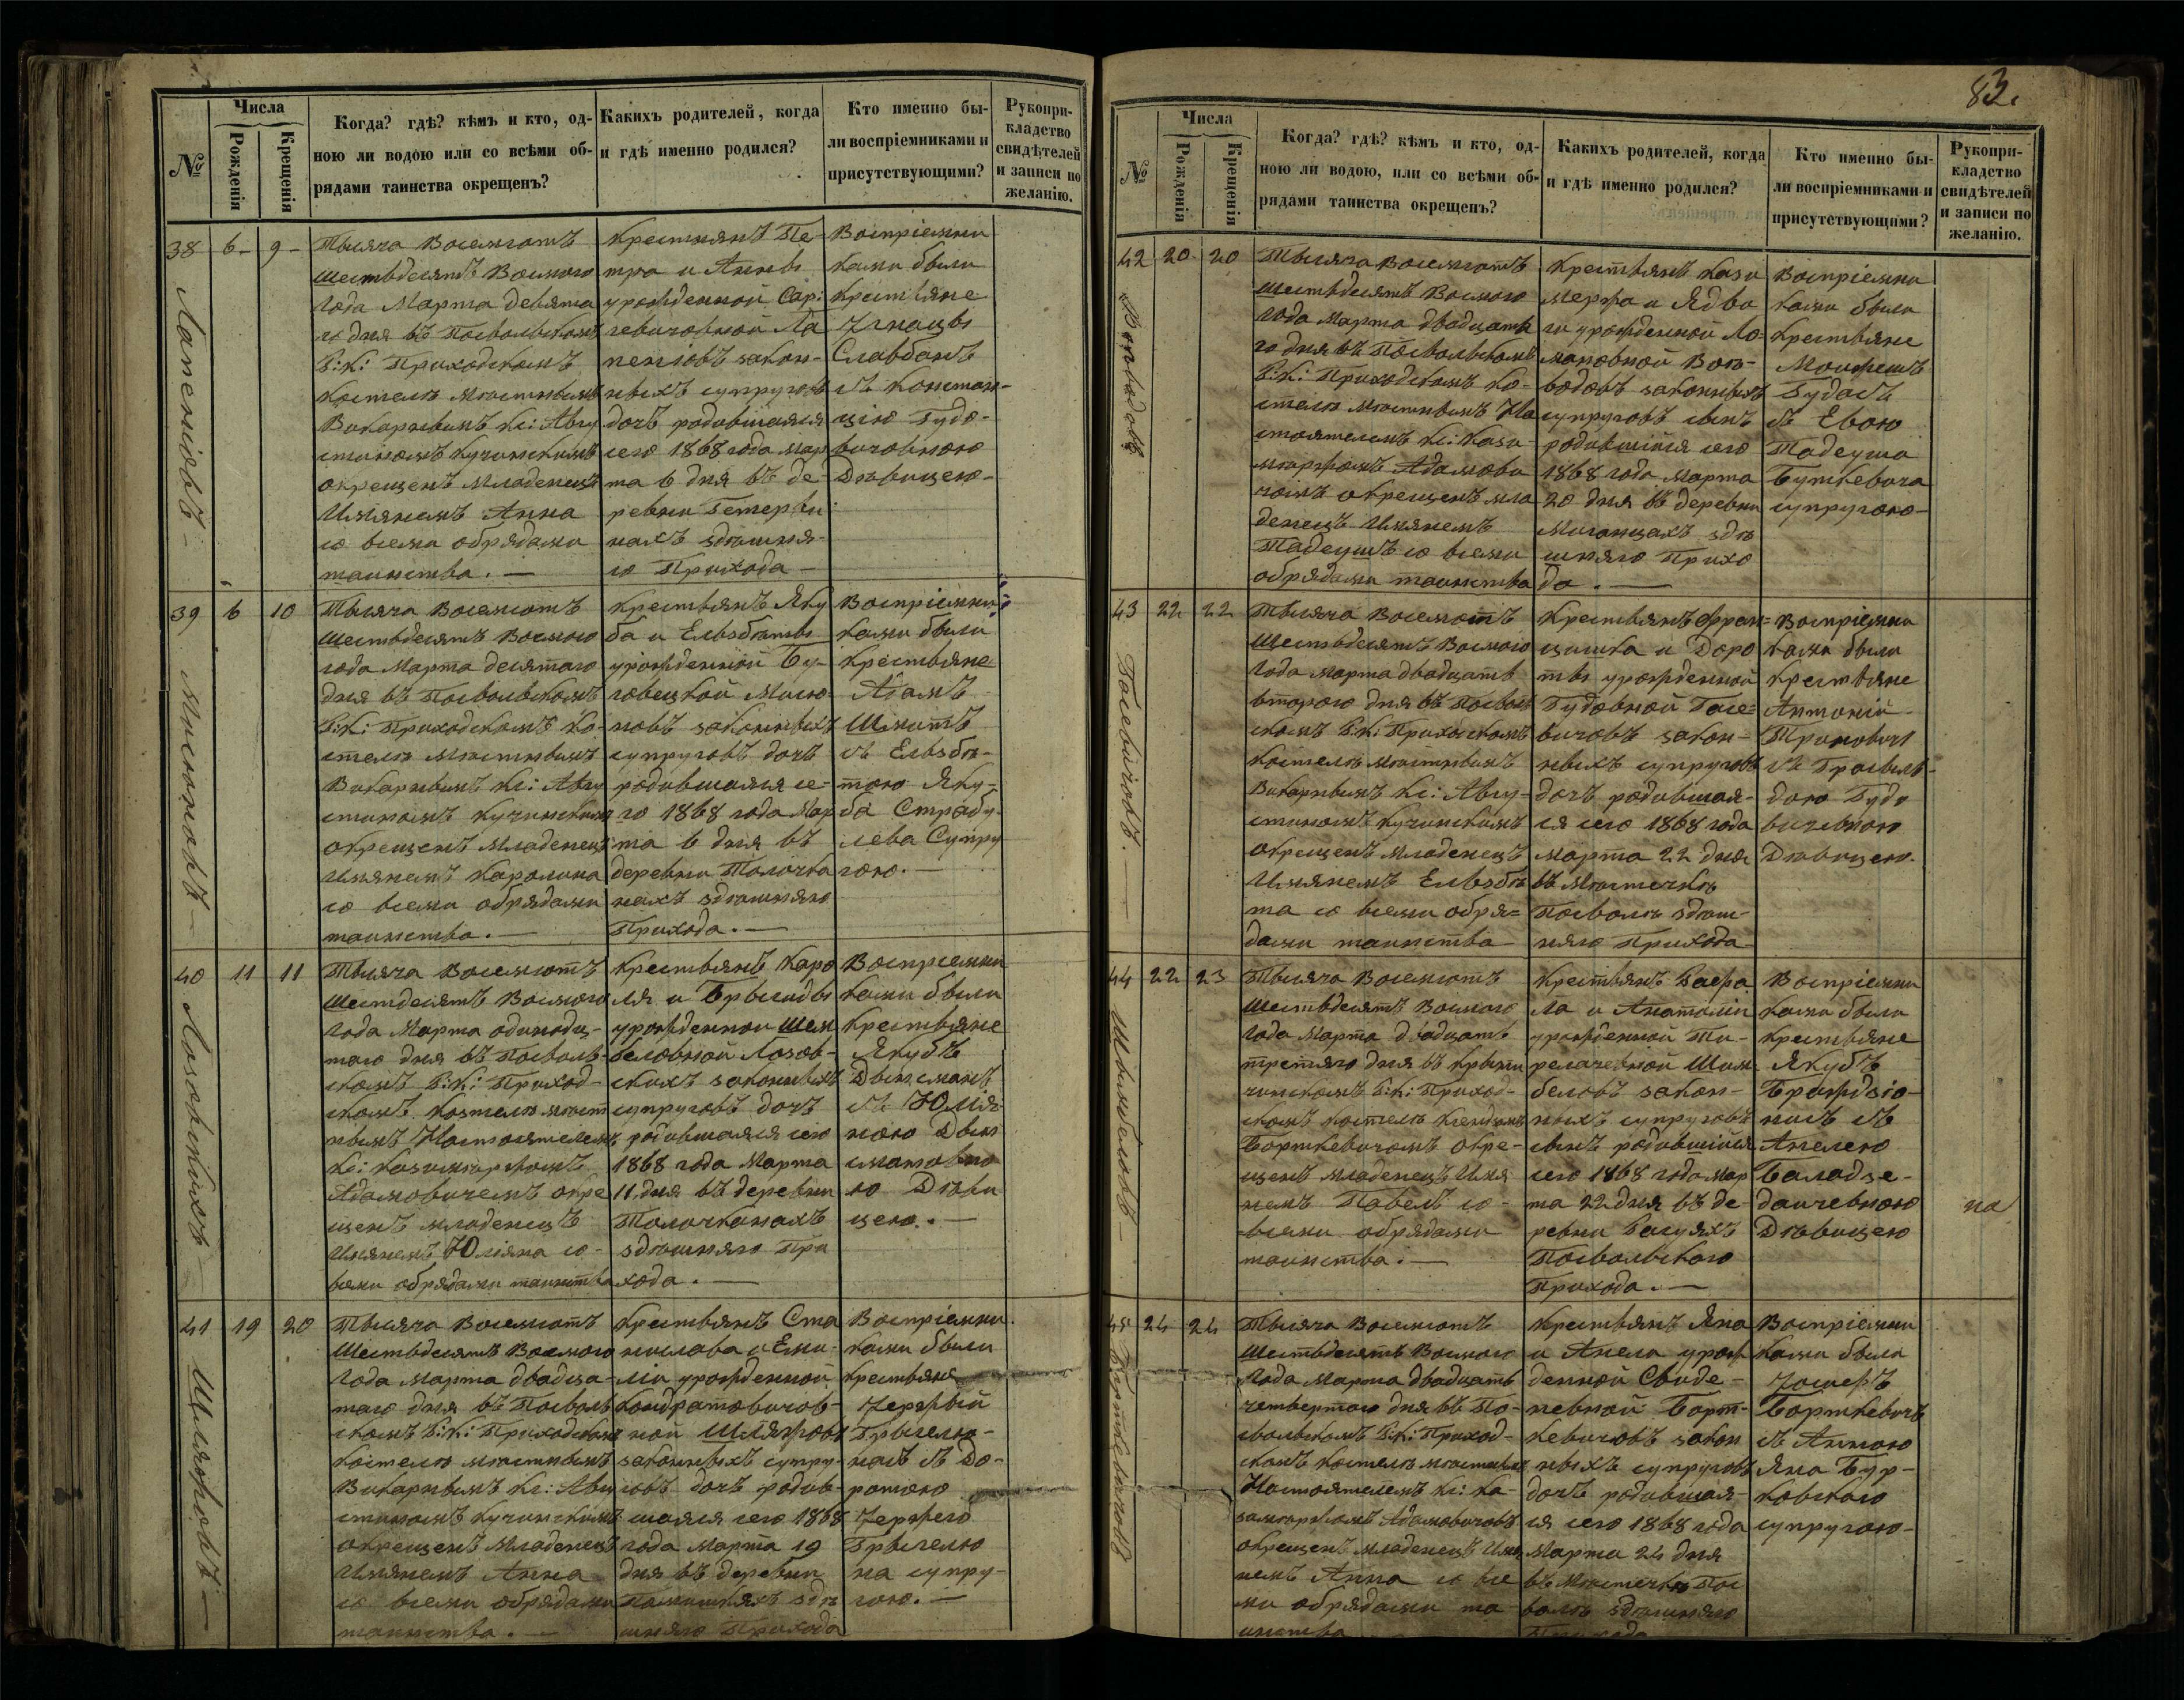 83.
№
Числа
Рожденія
Крещенія
Когда? гдѣ? кѣмъ и кто, од-
ною ли водою или со всѣми об-
рядами таинства окрещенъ?
Какихъ родителей, когда
и гдѣ именно родился?
Кто именно бы-
ли воспріемниками и
присутствующими?
Рукопри-
кладство
свидѣтелей
и записи по
желанію.
38
6-
9-
Тысяча восемсотъ
шестьдесятъ восмого
года Марта девята
го дня въ Посвольскомъ
Р: К: Приходскомъ
костелѣ мѣстнымъ
Викарнымъ Кс: Авгу
стиномъ Кучинскимъ
окрещенъ младенецъ
имянемъ Анна
со всеми обрядами
таинства. —
Крестьянъ Пе-
тра и Анны
урожденной
законныхъ супруговъ
дочь родившаяся
сего 1868 года Мар
та 6 дня въ де-
ревни
нахъ здѣшня-
го Прихода —
Воспріемни
ками были
Крестьяне
Игнацы
съ Констан-
цію Гудо-
вичовною
Дѣвицею-
39
6
10
Мисюнанъ -
Тысяча восемсотъ
шестьдесятъ восмого
года Марта десятаго
дня въ Посвольскомъ
Р: К: Приходскомъ ко-
стелѣ мѣстнымъ
Викарнымъ Кс: Авгу
стиномъ Кучинскимъ
окрещенъ младенецъ
имянемъ Каролина
со всеми обрядами
таинства. —
Крестьянъ Яку
ба и Ельзбѣты
урожденной Бу-
новъ законныхъ
супруговъ дочь
родившаяся се-
го 1868 года Мар
та 6 дня въ
деревни Толочка
нахъ здѣшняго
Прихода. —
Воспріемни
ками были
Крестьяне
Адамъ
съ Ельзбѣ-
тою Яку-
ба Страду-
лева Супру
гою. —
40
11
11
Тысяча восемсотъ
шестдесятъ восмого
года Марта одинадц-
таго дня въ Посволь-
скомъ Р: К: Приход-
скомъ костелѣ мѣст
нымъ Настоятелемъ
Кс: Казимѣржомъ
Адамовичемъ окре
щенъ младенецъ
имянемъ Юліяна со
всеми обрядами таинства
Крестьянъ Каро
ля и Брыгиды
урожденной Шем
беловной Лозов-
скихъ законныхъ
супруговъ дочь
родившаяся сего
1868 года Марта
11 дня въ деревни
Толочканахъ
здѣшняго При
хода. —
Воспріемни
ками были
Крестьяне
Якубъ
съ Юлія-
ною
ю Дѣви
цею. —
41
19
20
Тысяча восемсотъ
шестьдесятъ восмого
года Марта двадца-
таго дня въ Посволь
скомъ Р: К: Приходскомъ
костелѣ мѣстнымъ
Викарнымъ Кс: Авгу
стиномъ Кучинскимъ
окрещенъ младенецъ
имянемъ Анна
со всеми обрядами
таинства. —
Крестьянъ Ста
нислава и Еми-
ліи урожденной
Кондратовичов-
ной
законныхъ супру-
говъ дочь родив-
шаяся сего 1868
года Марта 19
дня въ деревни
здѣ
шняго Прихода
Воспріемни
ками были
Крестьяне
Брыгелю-
насъ съ До-
ротою
Брыгелю
на супру-
гою. —
№
Числа
Рожденія
Крещенія
Когда? гдѣ? кѣмъ и кто, од-
ною ли водою, или со всѣми об-
рядами таинства окрещенъ?
Какихъ родителей, когда
и гдѣ именно родился?
Кто именно бы-
ли воспріемниками и
присутствующими?
Рукопри-
кладство
свидѣтелей
и записи по
желанію.
42
20
20
Тысяча восемсотъ
шестьдесятъ восмого
года Марта двадцата
го дня въ Посвольскомъ
Р: К: Приходскомъ ко-
стелѣ мѣстнымъ На
стоятелемъ Кс: Кази-
мѣржомъ Адамови
чомъ окрещенъ мла
денецъ имянемъ
Тадеушъ со всеми
обрядами таинства
Крестьянъ Кази
мержа и Ядви
ги урожденной
законныхъ
супруговъ сынъ
родившійся сего
1868 года Марта
20 дня въ деревни
Миганцахъ здѣ
шняго Прихо
да. —
Воспріемни
ками были
Крестьяне
Мошеушъ
Будасъ
съ Евою
Тадеуша
Буткевича
супругою-
43
22
22
Тысяча восемсотъ
шестьдесятъ восмого
года Марта двадцать
второго дня въ Посволь
скомъ Р: К: Приходскомъ
костелѣ мѣстнымъ
Викарнымъ Кс: Авгу-
стиномъ Кучинскимъ
окрещенъ младенецъ
имянемъ Ельзбѣ
та со всеми обря=
дами таинства
Крестьянъ Фран=
цишка и Доро
ты урожденной
Гудовной
вичовъ закон-
ныхъ супруговъ
дочь родившая-
ся сего 1868 года
Марта 22 дня
въ Мѣстечкѣ
Посволѣ здѣш-
няго Прихода
Воспріемни
ками были
Крестьяне
Антоній
вичевною
Дѣвицею.
44
22
23
Тысяча восемсотъ
шестьдесятъ восмого
года Марта двадцать
третяго дня въ Крыни
чинскомъ Р: К: Приход-
скомъ костелѣ Ксендзомъ
Борткевичомъ окре-
щенъ младенецъ имя
немъ Павелъ со
всеми обрядами
таинства. —
Крестьянъ Рафа
ла и Анатоліи
урожденной
закон-
ныхъ супруговъ
сынъ родившійся
сего 1868 года Мар
та 22 дня въ де-
ревни
Посвольского
Прихода. —
Воспріемни
ками были
Крестьяне
Якубъ
насъ съ
Анелею
Дѣвицею
на
45
24
24
Тысяча восемсотъ
шестьдесятъ восмого
года Марта двадцать
четвертого дня въ По-
свольскомъ Р: К: Приход-
скомъ костелѣ мѣстнымъ
Настоятелемъ Кс: Ка-
зимѣржомъ Адамовичовъ
окрещенъ младенецъ имя
немъ Анна со все
ми обрядами та-
инства
Крестьянъ Яна
и Анела урож
денной Свиде-
невной Борт-
кевичовъ закон
ныхъ супруговъ
дочь родившая-
ся сего 1868 года
Марта 24 дня
въ Мѣстечкѣ Пос
волѣ здѣшняго
Прихода
Воспріемни
ками были
Юзефъ
Борткевичъ
съ Анною
Яна Бур-
ковского
супругою-